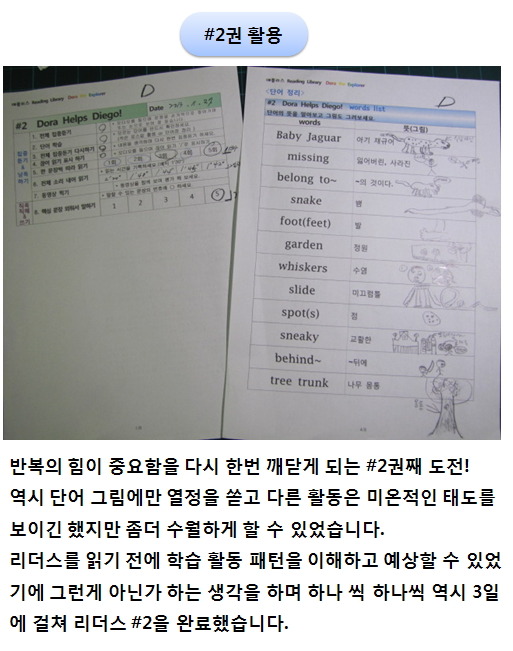 #2권 활용
Reading Library Dora the Explorer
#2 Dora Helps Diego! Date
1. 전체 집중듣기
2. 단어 학습
3. 전체 집중듣기 다시하기
4. 끊어 읽기 표시 하기
5. 한 문장씩 따라 읽기
6. 전체 소리 내어 읽기
7. 동영상 찍기
8. 핵심 문장 외워서 말하기 1 2 3 4 5
Reading Library Dora the Explorer
<단어 정리>
#2 Dora Helps Diego! words list
단어의 뜻을 알아보고 그림도 그려보세요.
words 뜻(그림)
Baby Jaguar 아기 재규어
missing 잃어버린, 사라진
belong to~ ~의 것이다.
snake 뱀
foot(feet) 발
garden 정원
whiskers 수염
slide 미끄럼틀
spot(s) 점
sneaky 교활한
behind~ ~뒤에
tree trunk 나무 몸통
반복의 힘이 중요함을 다시 한번 깨닫게 되는 #2권째 도전!
역시 단어 그림에만 열정을 쏟고 다른 활동은 미온적인 태도를
보이긴 했지만 좀더 수월하게 할 수 있었습니다.
리더스를 읽기 전에 학습 활동 패턴을 이해하고 예상할 수 있었
기에 그런게 아닌가 하는 생각을 하며 하나 씩 하나씩 역시 3일
에 걸쳐 리더스 #2을 완료했습니다.